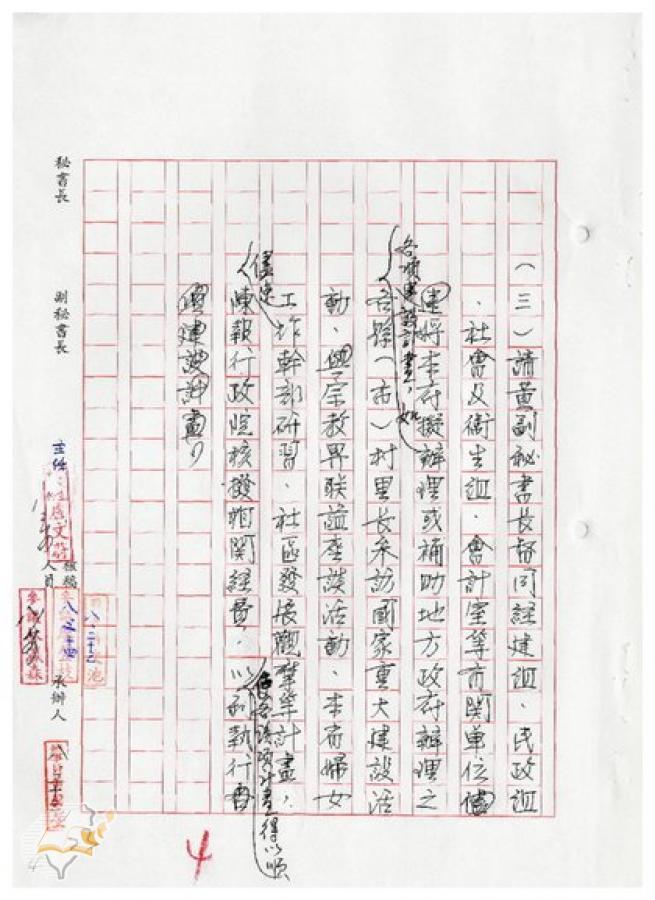 (三)請黃副秘書長督同經建組、民政組
、社會及衛生組、會計室等有關單位儘
速將本府擬辦理或補助地方政府辦理之
各項建設計畫,如
各縣(市)村里長參訪國家重大建設活
動、與宗教界聯誼座談活動、本府婦女
工作幹部研習、社區發展觀摩等計畫,
儘速
陳報行政院核撥相關經費,以利執行各
使各該項計畫得以順
項建設計畫。
秘書長
副秘書長
主任
核稿人員
承辦人
4